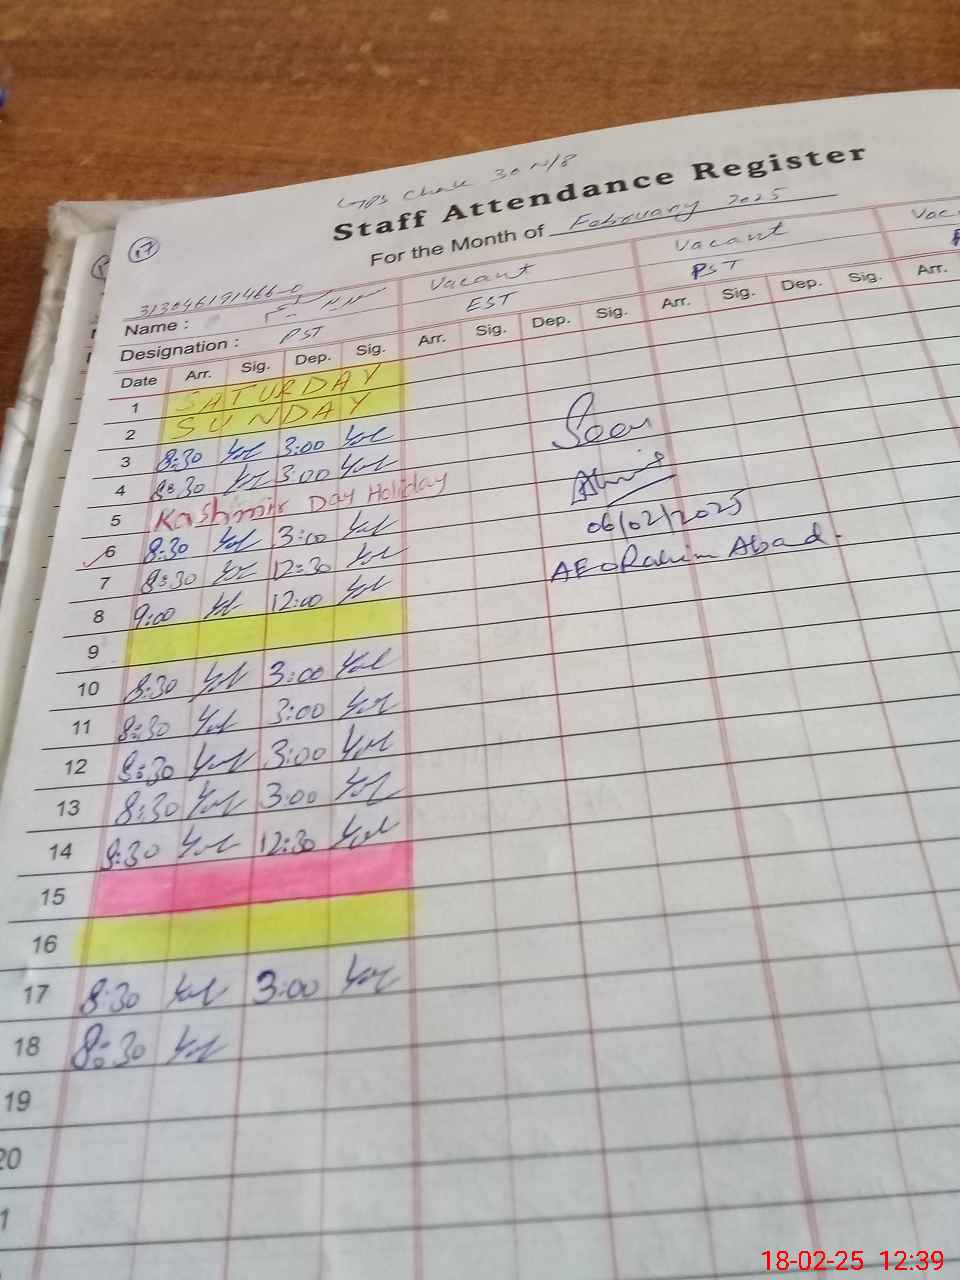 GPS Chak 30 N/8
Staff Attendance Register
For the Month of February 2025
17
313046191466-0 Vacant Vacant Vac
Name :
Designation : PST EST PST
Date Arr. Sig. Dep. Sig. Arr. Sig. Dep. Sig. Arr. Sig. Dep. Sig. Arr.
1 SATURDAY
2 SUNDAY
3 8:30 3:00
4 8:30 3:00
Seen
5 Kashmir Day Holiday
6 8:30 3:00
06/02/2025
7 8:30 12:30
AEO Rahim Abad.
8 9:00 12:00
9
10 8:30 3:00
11 8:30 3:00
12 8:30 3:00
13 8:30 3:00
14 8:30 12:30
15
16
17 8:30 3:00
18 8:30
19
20
1
18-02-25 12:39